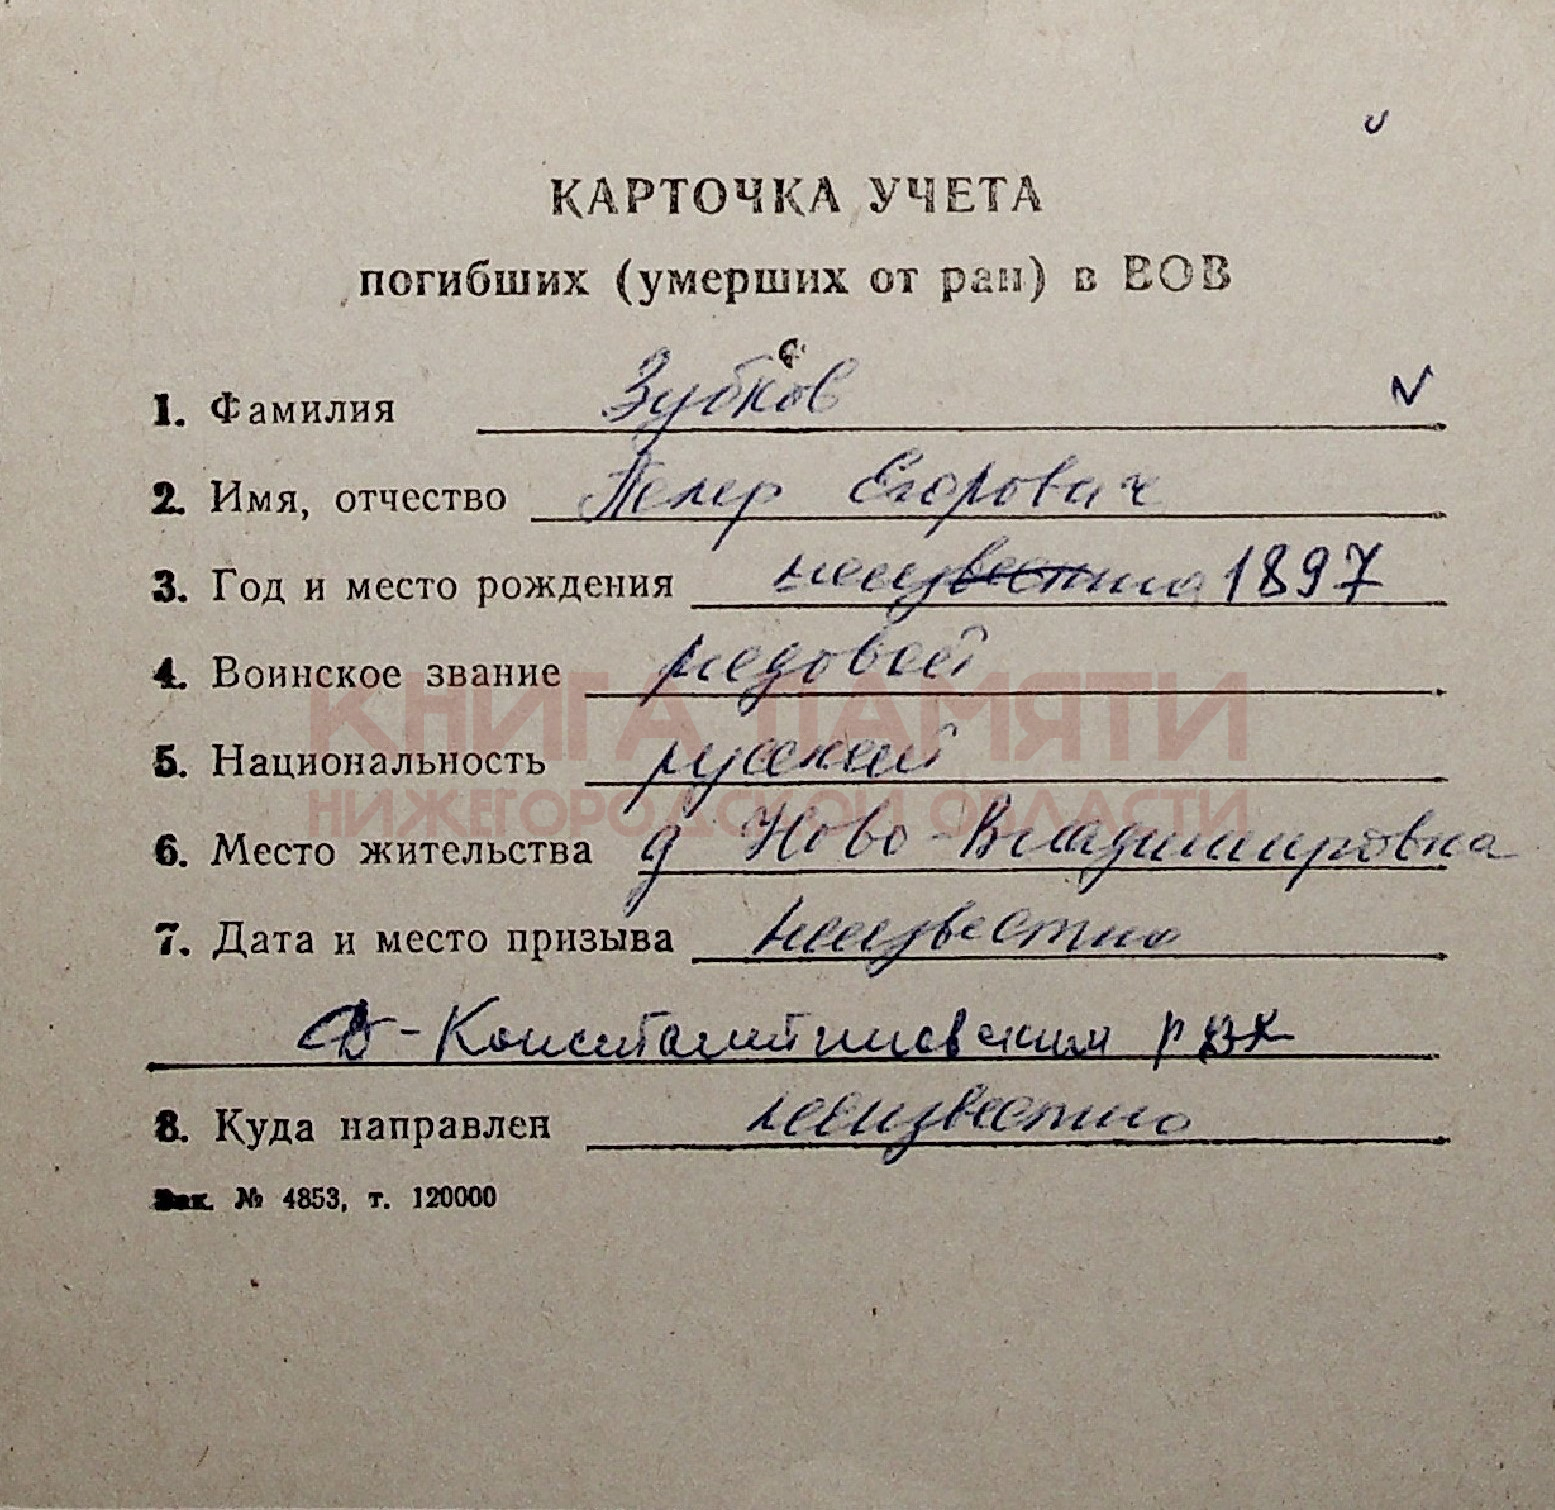 КАРТОЧКА УЧЕТА
погибших (умерших от ран) в ВОВ
1. Фамилия Зубков
2. Имя, отчество Петр Егорович
3. Год и место рождения неизвестно 1897
4. Воинское звание рядовой
КНИГА ПАМЯТИ
5. Национальность русский
НИЖЕГОРОДСКОЙ ОБЛАСТИ
6. Место жительства д Ново-Владимировка
7. Дата и место призыва неизвестно
Д-Константиновским РВК
8. Куда направлен неизвестно
Зак. № 4853, т. 120000